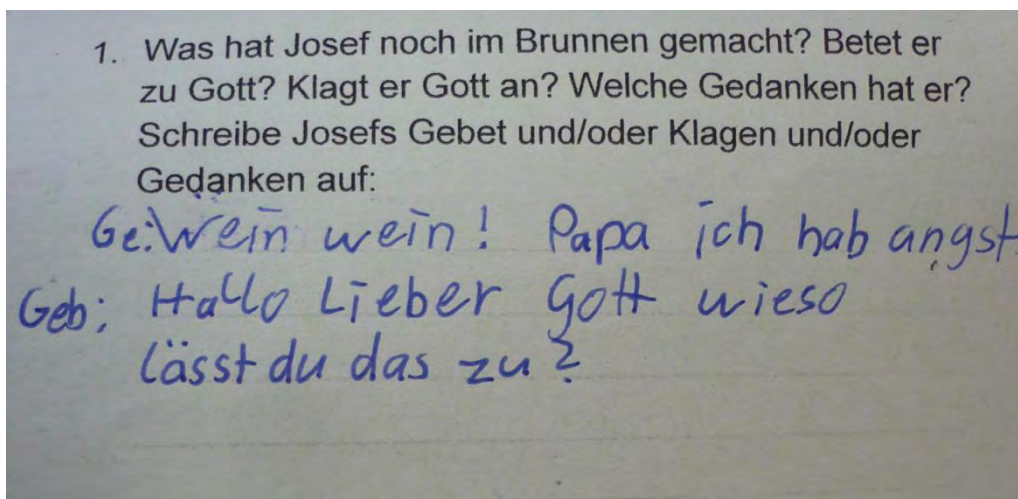 1. Was hat Josef noch im Brunnen gemacht? Betet er
zu Gott? Klagt er Gott an? Welche Gedanken hat er?
Schreibe Josefs Gebet und/oder Klagen und/oder
Gedanken auf:
Ge: Wein wein! Papa ich hab angst
Geb: Hallo Lieber Gott wieso
lässt du das zu?